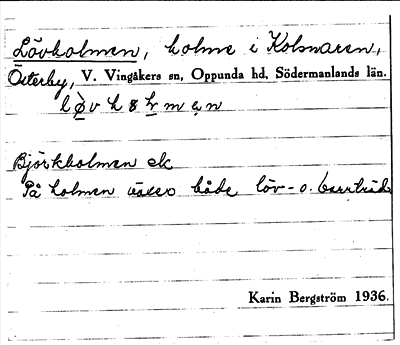 Lövholmen, holme i Kolsnaren,
Österby, V. Vingåkers sn, Oppunda hd, Södermanlands län.
Björkholmen ek
På holmen växer både löv- o. barrträd
Karin Bergström 1936.